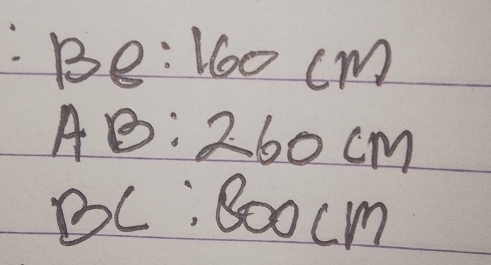 : Be: 160 cm
AB: 260 cm
BC: 800 cm